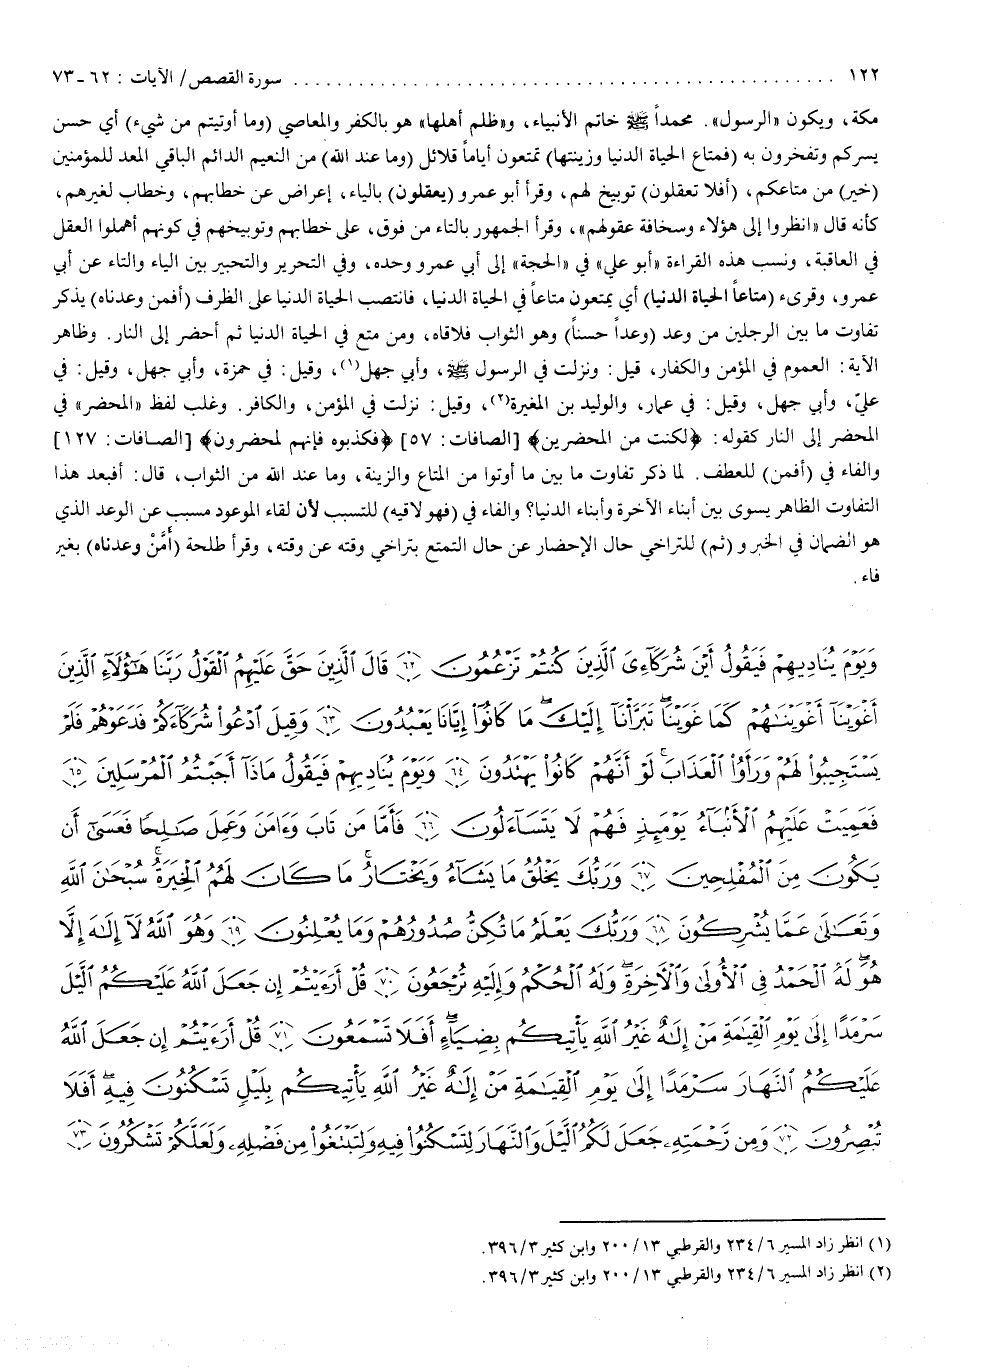 ١٢٢ ........................................ سورة القصص/ الآيات : ٦٢ ـ ٧٣
مكة، ويكون «الرسول». محمداً ﷺ خاتم الأنبياء، و«ظلم أهلها» هو بالكفر والمعاصي (وما أوتيتم من شيء) أي حسن
يسركم وتفخرون به (فمتاع الحياة الدنيا وزينتها) تمتعون أياماً قلائل (وما عند الله) من النعيم الدائم الباقي المعد للمؤمنين
(خير) من متاعكم، (أفلا تعقلون) توبيخ لهم، وقرأ أبو عمرو (يعقلون) بالياء، إعراض عن خطابهم، وخطاب لغيرهم،
كأنه قال «انظروا إلى هؤلاء وسخافة عقولهم»، وقرأ الجمهور بالتاء من فوق، على خطابهم وتوبيخهم في كونهم أهملوا العقل
في العاقبة، ونسب هذه القراءة «أبو علي» في «الحجة» إلى أبي عمرو وحده، وفي التحرير والتحبير بين الياء والتاء عن أبي
عمرو، وقرىء (متاعاً الحياة الدنيا) أي يمتعون متاعاً في الحياة الدنيا، فانتصب الحياة الدنيا على الظرف (أفمن وعدناه) يذكر
تفاوت ما بين الرجلين من وعد (وعداً حسناً) وهو الثواب فلاقاه، ومن متع في الحياة الدنيا ثم أحضر إلى النار. وظاهر
الآية: العموم في المؤمن والكفار، قيل: ونزلت في الرسول ﷺ، وأبي جهل(١)، وقيل: في حمزة، وأبي جهل، وقيل: في
عليّ، وأبي جهل، وقيل: في عمار، والوليد بن المغيرة(٢)، وقيل: نزلت في المؤمن، والكافر. وغلب لفظ «المحضر» في
المحضر إلى النار كقوله: ﴿لكنت من المحضرين﴾ [الصافات: ٥٧] ﴿فكذبوه فإنهم لمحضرون﴾ [الصافات: ١٢٧]
والفاء في (أفمن) للعطف. لما ذكر تفاوت ما بين ما أوتوا من المتاع والزينة، وما عند الله من الثواب، قال: أفبعد هذا
التفاوت الظاهر يسوى بين أبناء الآخرة وأبناء الدنيا؟ والفاء في (فهو لاقيه) للتسبب لأن لقاء الموعود مسبب عن الوعد الذي
هو الضمان في الخبر و (ثم) للتراخي حال الإحضار عن حال التمتع بتراخي وقته عن وقته، وقرأ طلحة (أَمَّنْ وعدناه) بغير
فاء.
وَيَوْمَ يُنَادِيهِمْ فَيَقُولُ أَيْنَ شُرَكَآءِىَ ٱلَّذِينَ كُنتُمْ تَزْعُمُونَ ﴿٦٢﴾ قَالَ ٱلَّذِينَ حَقَّ عَلَيْهِمُ ٱلْقَوْلُ رَبَّنَا هَٰٓؤُلَآءِ ٱلَّذِينَ
أَغْوَيْنَآ أَغْوَيْنَٰهُمْ كَمَا غَوَيْنَا ۖ تَبَرَّأْنَآ إِلَيْكَ ۖ مَا كَانُوٓا۟ إِيَّانَا يَعْبُدُونَ ﴿٦٣﴾ وَقِيلَ ٱدْعُوا۟ شُرَكَآءَكُمْ فَدَعَوْهُمْ فَلَمْ
يَسْتَجِيبُوا۟ لَهُمْ وَرَأَوُا۟ ٱلْعَذَابَ ۚ لَوْ أَنَّهُمْ كَانُوا۟ يَهْتَدُونَ ﴿٦٤﴾ وَيَوْمَ يُنَادِيهِمْ فَيَقُولُ مَاذَآ أَجَبْتُمُ ٱلْمُرْسَلِينَ ﴿٦٥﴾
فَعَمِيَتْ عَلَيْهِمُ ٱلْأَنۢبَآءُ يَوْمَئِذٍ فَهُمْ لَا يَتَسَآءَلُونَ ﴿٦٦﴾ فَأَمَّا مَن تَابَ وَءَامَنَ وَعَمِلَ صَٰلِحًا فَعَسَىٰٓ أَن
يَكُونَ مِنَ ٱلْمُفْلِحِينَ ﴿٦٧﴾ وَرَبُّكَ يَخْلُقُ مَا يَشَآءُ وَيَخْتَارُ ۗ مَا كَانَ لَهُمُ ٱلْخِيَرَةُ ۚ سُبْحَٰنَ ٱللَّهِ
وَتَعَٰلَىٰ عَمَّا يُشْرِكُونَ ﴿٦٨﴾ وَرَبُّكَ يَعْلَمُ مَا تُكِنُّ صُدُورُهُمْ وَمَا يُعْلِنُونَ ﴿٦٩﴾ وَهُوَ ٱللَّهُ لَآ إِلَٰهَ إِلَّا
هُوَ ۖ لَهُ ٱلْحَمْدُ فِى ٱلْأُولَىٰ وَٱلْآخِرَةِ ۖ وَلَهُ ٱلْحُكْمُ وَإِلَيْهِ تُرْجَعُونَ ﴿٧٠﴾ قُلْ أَرَءَيْتُمْ إِن جَعَلَ ٱللَّهُ عَلَيْكُمُ ٱلَّيْلَ
سَرْمَدًا إِلَىٰ يَوْمِ ٱلْقِيَٰمَةِ مَنْ إِلَٰهٌ غَيْرُ ٱللَّهِ يَأْتِيكُم بِضِيَآءٍ ۖ أَفَلَا تَسْمَعُونَ ﴿٧١﴾ قُلْ أَرَءَيْتُمْ إِن جَعَلَ ٱللَّهُ
عَلَيْكُمُ ٱلنَّهَارَ سَرْمَدًا إِلَىٰ يَوْمِ ٱلْقِيَٰمَةِ مَنْ إِلَٰهٌ غَيْرُ ٱللَّهِ يَأْتِيكُم بِلَيْلٍ تَسْكُنُونَ فِيهِ ۖ أَفَلَا
تُبْصِرُونَ ﴿٧٢﴾ وَمِن رَّحْمَتِهِۦ جَعَلَ لَكُمُ ٱلَّيْلَ وَٱلنَّهَارَ لِتَسْكُنُوا۟ فِيهِ وَلِتَبْتَغُوا۟ مِن فَضْلِهِۦ وَلَعَلَّكُمْ تَشْكُرُونَ ﴿٧٣﴾
(١) انظر زاد المسير ٢٣٤/٦ والقرطبي ٢٠٠/١٣ وابن كثير ٣٩٦/٣.
(٢) انظر زاد المسير ٢٣٤/٦ والقرطبي ٢٠٠/١٣ وابن كثير ٣٩٦/٣.